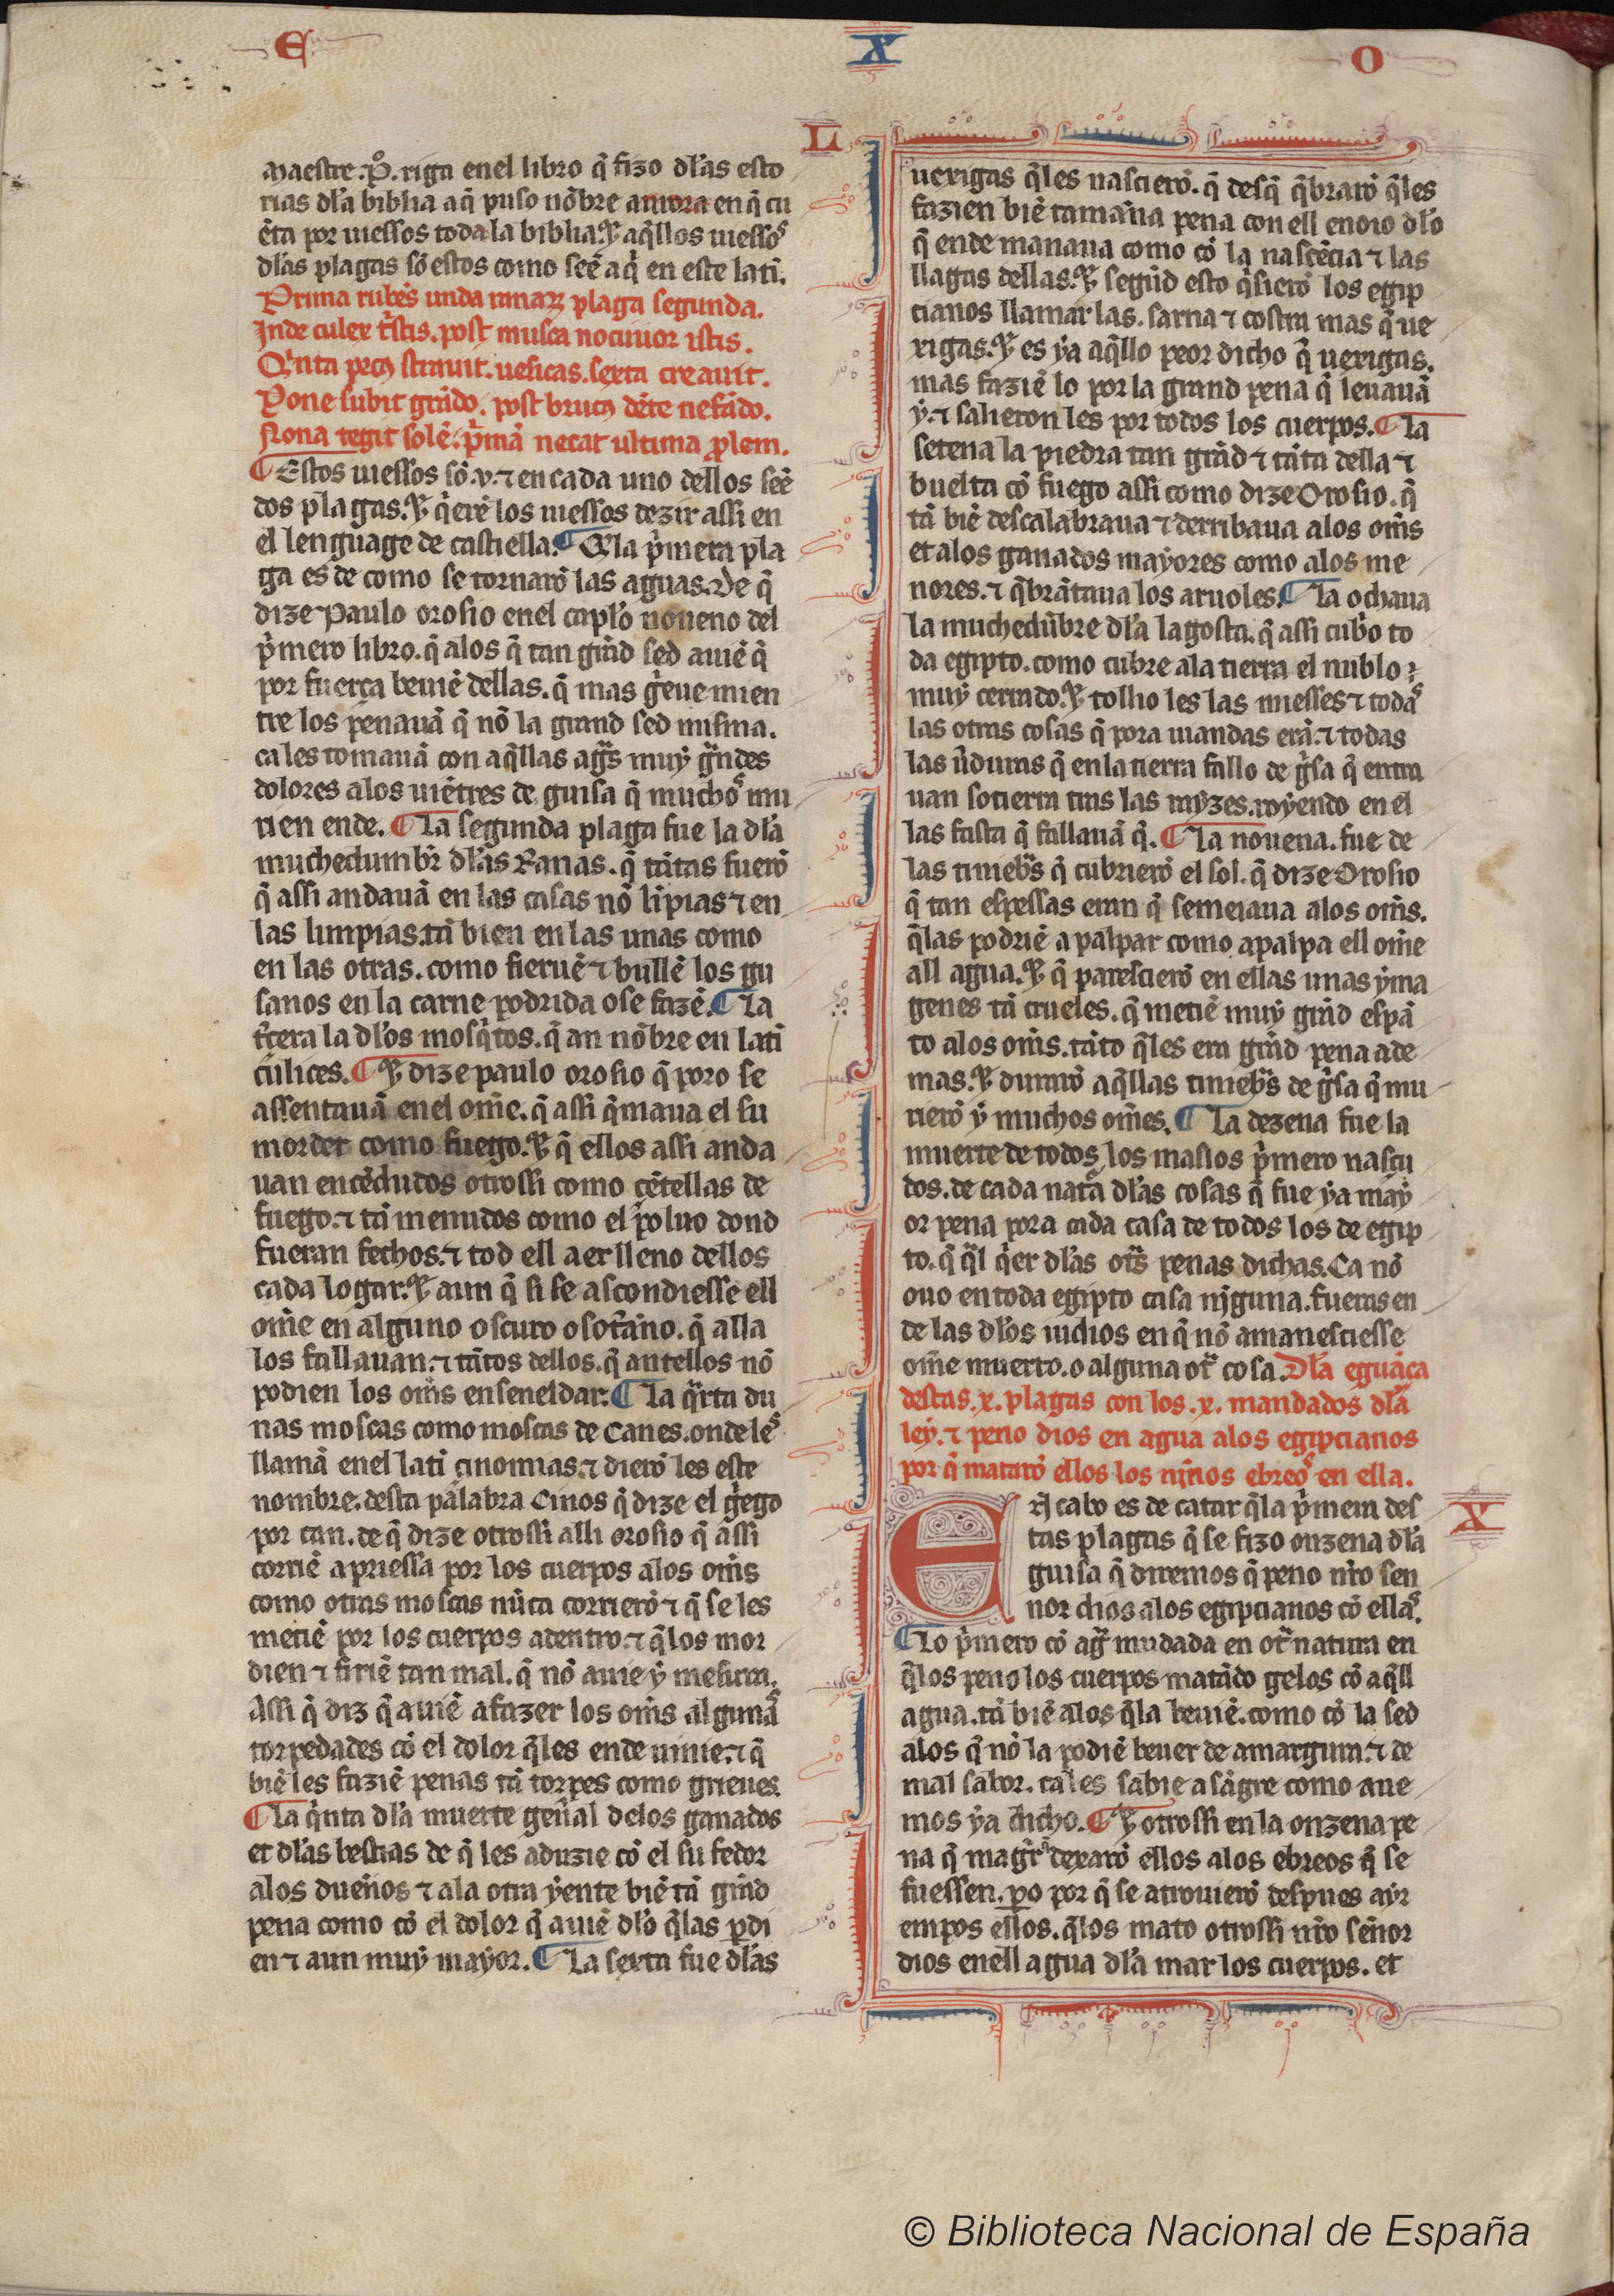 E X O
L
maestre .Pº. riga enel libro q̃ fizo dłas esto
rias dła biblia aq̃ puso nõbre aurora en q̃ cu
ẽta por uiessos toda la biblia. Et aq̃llos uiessos
dłas plagas sõ estos como seẽ aq̃ en este latĩ.
Prima rubẽs unda ranarꝝ plaga segunda.
Inde culex tͥstis. post musca nociuior istis.
Qͥnta pecꝯ strauit. uesicas. sexta creauit.
Pone subit grãdo. post brucꝯ dẽte nefãdo.
Nona tegit solẽ. pͥmã necat ultima ꝓlem.
¶ Estos uiessos sõ .v. ⁊ en cada uno dellos seẽ
dos plagas. Et qͥerẽ los uiessos dezir assi en
el lenguage de castiella. ¶ Q̃la pͥmera pla
ga es de como se tornarõ las aguas. De q̃
dize Paulo orosio enel capło noueno del
pͥmero libro. q̃ alos q̃ tan grãd sed auiẽ q̃
por fuerça beuiẽ dellas. q̃ mas gͥeue mien
tre los penauã q̃ nõ la grand sed misma.
ca les tomauã con aq̃llas agᵃs muy gᵃndes
dolores alos uiẽtres de guisa q̃ muchos mu
rien ende. ¶ La segunda plaga fue la dła
muchedumbrͤ dłas Ranas. q̃ tãtas fuerõ
q̃ assi andauã en las casas nõ lĩpias ⁊ en
las limpias. tã bien en las unas como
en las otras. como fieruẽ ⁊ bullẽ los gu
sanos en la carne podrida o se fazẽ. ¶ La
tͤcera la dłos mosqͥtos. q̃ an nõbre en latĩ
culices. ¶ Et dize paulo orosio q̃ poro se
assentauã enel om̃e. q̃ assi q̃maua el su
morder como fuego. Et q̃ ellos assi anda
uan encẽdudos otrossi como cẽtellas de
fuego. ⁊ tã menudos como el poluo dond
fueran fechos. ⁊ tod ell aer lleno dellos
cada logar. Et aun q̃ si se ascondiesse ell
om̃e en alguno oscuro o sotãno. q̃ alla
los fallauan. ⁊ tãtos dellos. q̃ antellos nõ
podien los om̃s enseneldar. ¶ La qᵃrta du
nas moscas como moscas de Canes. onde les
llamã enel latĩ cinomias. ⁊ dierõ les este
nombre. desta palabra Cinos q̃ dize el gͥego
por can. de q̃ dize otrossi alli orosio q̃ assi
corriẽ apriessa por los cuerpos alos om̃s
como otras moscas nũca corrierõ ⁊ q̃ se les
metiẽ por los cuerpos adentro. ⁊ q̃los mor
dien ⁊ firiẽ tan mal. q̃ nõ auie y mesura.
Assi q̃ diz q̃ auiẽ afazer los om̃s algunas
torpedades cõ el dolor q̃les ende uinie. ⁊ q̃
biẽ les faziẽ penas tã torpes como grieues.
¶ La qͥnta dła muerte gen̉al delos ganados
et dłas bestias de q̃ les aduzie cõ el su fedor
alos duenos ⁊ ala otra yente biẽ tã grãd
pena como cõ el dolor q̃ auiẽ dło q̃las ꝑdi
en ⁊ aun muy mayor. ¶ La sexta fue dłas
uexigas q̃les nascierõ. q̃ desq̃ q̃brarõ q̃les
fazien biẽ tamaña pena con ell enoio dło
q̃ ende manaua como cõ la nascẽcia ⁊ las
llagas dellas. Et segũd esto qͥsierõ los egip
cianos llamar las. sarna ⁊ costra mas q̃ ue
xigas. Et es ya aq̃llo peor dicho q̃ uexigas.
mas faziẽ lo por la grand pena q̃ leuauã
y. ⁊ salieron les por todos los cuerpos. ¶ La
setena la piedra tan grãd ⁊ tãta della ⁊
buelta cõ fuego assi como dize Orosio. q̃
tã biẽ descalabraua ⁊ derribaua alos om̃s
et alos ganados mayores como alos me
nores. ⁊ q̃brãtaua los aruoles. ¶ La ochaua
la muchedũbre dła lagosta. q̃ assi cubͥo to
da egipto. como cubre ala tierra el nublo
muy cerrado. Et tollio les las miesses ⁊ todas
las otras cosas q̃ pora uiandas erã. ⁊ todas
las ũduras q̃ en la tierra fallo de gͥsa q̃ entra
uan sotierra tras las rayzes. royendo en el
las fasta q̃ fallauã q̃. ¶ La nouena. fue de
las tinebͬs q̃ cubrierõ el sol. q̃ dize Orosio
q̃ tan espessas eran q̃ semeiaua alos om̃s.
q̃las podriẽ apalpar como apalpa ell om̃e
all agua. Et q̃ parescierõ en ellas unas yma
genes tã crueles. q̃ metiẽ muy grãd espã
to alos om̃s. tãto q̃les era grãd pena ade
mas. Et durarõ aq̃llas tiniebͬs de gͥsa q̃ mu
rierõ y muchos om̃es. ¶ La dezena fue la
muerte de todos los maslos pͥmero nasçu
dos. de cada natᵃ dłas cosas q̃ fue ya may
or pena pora cada casa de todos los de egip
to. q̃ qᵃl qͥer dłas otᵃs penas dichas. Ca nõ
ouo en toda egipto casa nĩguna. fueras en
de las dłos iudios en q̃ nõ amanesciesse
om̃e muerto. o alguna otᵃ cosa. Dła eguãça
destas .x. plagas con los .x. mandados dła
ley. ⁊ peno dios en agua alos egipcianos
por q̃ matarõ ellos los ninos ebreos en ella.
En cabo es de catar q̃la pͥmera des
tas plagas q̃ se fizo onzena dła
guisa q̃ diremos q̃ peno nr̃o sen
nor dios alos egipcianos cõ ellas.
X
¶ Lo pͥmero cõ agᵃ mudada en otᵃ natura en
q̃los peno los cuerpos matãdo gelos cõ aq̃ll
agua. tã biẽ alos q̃la beuiẽ. como cõ la sed
alos q̃ nõ la podiẽ beuer de amargura. ⁊ de
mal sabor. ca les sabie a sãgre como aue
mos ya dicho. ¶ Et otrossi en la onzena pe
na q̃ magͬ dexarõ ellos alos ebreos q̃ se
fuessen. ꝑo por q̃ se atrouierõ despues ayr
empos ellos. q̃los mato otrossi nr̃o señor
dios enell agua dła mar los cuerpos. et
© Biblioteca Nacional de España